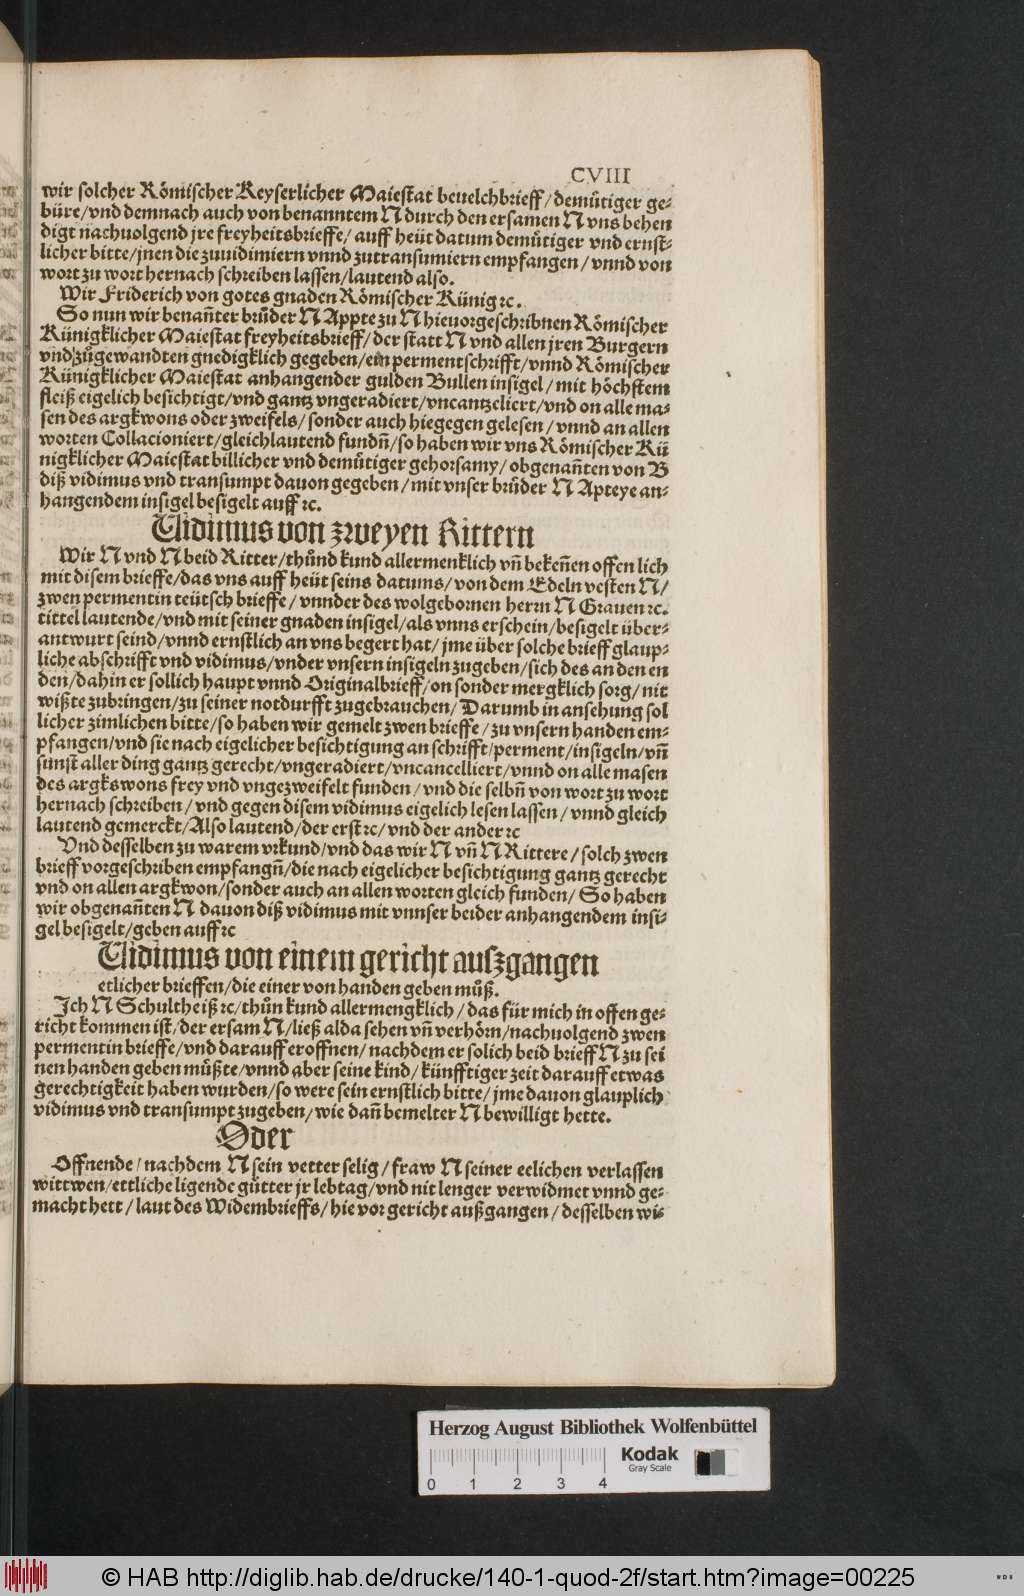 CVIII
wir solcher Römischer Keyserlicher Maiestat beuelchbrieff/demuͤtiger ge⸗
büre/vnd demnach auch von benanntem N durch den ersamen N vns behen
digt nachuolgend jre freyheitsbrieffe/ auff heüt datum demuͤtiger vnd ernst⸗
licher bitte/jnen die zuuidimiern vnnd zutransumiern empfangen / vnnd von
wort zu wort hernach schreiben lassen/lautend also.
Wir Friderich von gotes gnaden Römischer Künig ꝛc.
So nun wir benañter bruͤder N Appte zu N hieuorgeschribnen Römischer
Künigklicher Maiestat freyheitsbrieff/der statt N vnd allen jren Burgern
vnd zuͦgewandten gnedigklich gegeben/ein permentschrifft/vnnd Römischer
Künigklicher Maiestat anhangender gulden Bullen insigel/mit höchstem
fleiß eigelich besichtigt/vnd gantz vngeradiert/vncantzeliert/vnd on alle ma⸗
sen des argkwons oder zweifels/sonder auch hiegegen gelesen/vnnd an allen
worten Collacioniert/gleichlautend fundñ/so haben wir vns Römischer Kü
nigklicher Maiestat billicher vnd demuͤtiger gehorsamy/obgenañten von B
diß vidimus vnd transumpt dauon gegeben/mit vnser bruͤder N Apteye an⸗
hangendem insigel besigelt auff ꝛc.
Vidimus von zweyen Rittern
Wir N vnd N beid Ritter/thuͦnd kund allermenklich vñ bekeñen offen lich
mit disem brieffe/das vns auff heüt seins datums/von dem Edeln vesten N/
zwen permentin teütsch brieffe/vnnder des wolgebornen herrn N Grauen ꝛc.
tittel lautende/vnd mit seiner gnaden insigel/als vnns erschein/besigelt über⸗
antwurt seind/vnnd ernstlich an vns begert hat/jme über solche brieff glaup⸗
liche abschrifft vnd vidimus/vnder vnsern insigeln zugeben/sich des an den en
den/dahin er sollich haupt vnnd Originalbrieff/on sonder mergklich sorg/nit
wißte zubringen/zu seiner notdurfft zugebrauchen/Darumb in ansehung sol
licher zimlichen bitte/so haben wir gemelt zwen brieffe/zu vnsern handen em⸗
pfangen/vnd sie nach eigelicher besichtigung an schrifft/perment/insigeln/vñ
sunst aller ding gantz gerecht/vngeradiert/vncancelliert/vnnd on alle masen
des argkswons frey vnd vngezweifelt funden/vnd die selbñ von wort zu wort
hernach schreiben/vnd gegen disem vidimus eigelich lesen lassen/vnnd gleich
lautend gemerckt/Also lautend/der erst ꝛc/vnd der ander ꝛc
Vnd desselben zu warem vrkund/vnd das wir N vñ N Rittere/solch zwen
brieff vorgeschriben empfangñ/die nach eigelicher besichtigung gantz gerecht
vnd on allen argkwon/sonder auch an allen worten gleich funden/So haben
wir obgenañten N dauon diß vidimus mit vnnser beider anhangendem insi⸗
gel besigelt/geben auff ꝛc
Vidimus von einem gericht auszgangen
etlicher brieffen/die einer von handen geben muͦß.
Ich N Schultheiß ꝛc/thuͦn kund allermengklich/das für mich in offen ge⸗
richt kommen ist/der ersam N/ließ alda sehen vñ verhörn/nachuolgend zwen
permentin brieffe/vnd darauff eroffnen/nachdem er solich beid brieff N zu sei
nen handen geben muͤßte/vnnd aber seine kind/künfftiger zeit darauff etwas
gerechtigkeit haben wurden/so were sein ernstlich bitte/jme dauon glauplich
vidimus vnd transumpt zugeben/wie dañ bemelter N bewilligt hette.
Oder
Offnende/nachdem N sein vetter selig/fraw N seiner eelichen verlassen
wittwen/ettliche ligende guͤtter jr lebtag/vnd nit lenger verwidmet vnnd ge⸗
macht hett/laut des Widembrieffs/hie vor gericht außgangen/desselben wi⸗
Herzog August Bibliothek Wolfenbüttel
Kodak
Gray Scale
0 1 2 3 4
© HAB http://diglib.hab.de/drucke/140-1-quod-2f/start.htm?image=00225